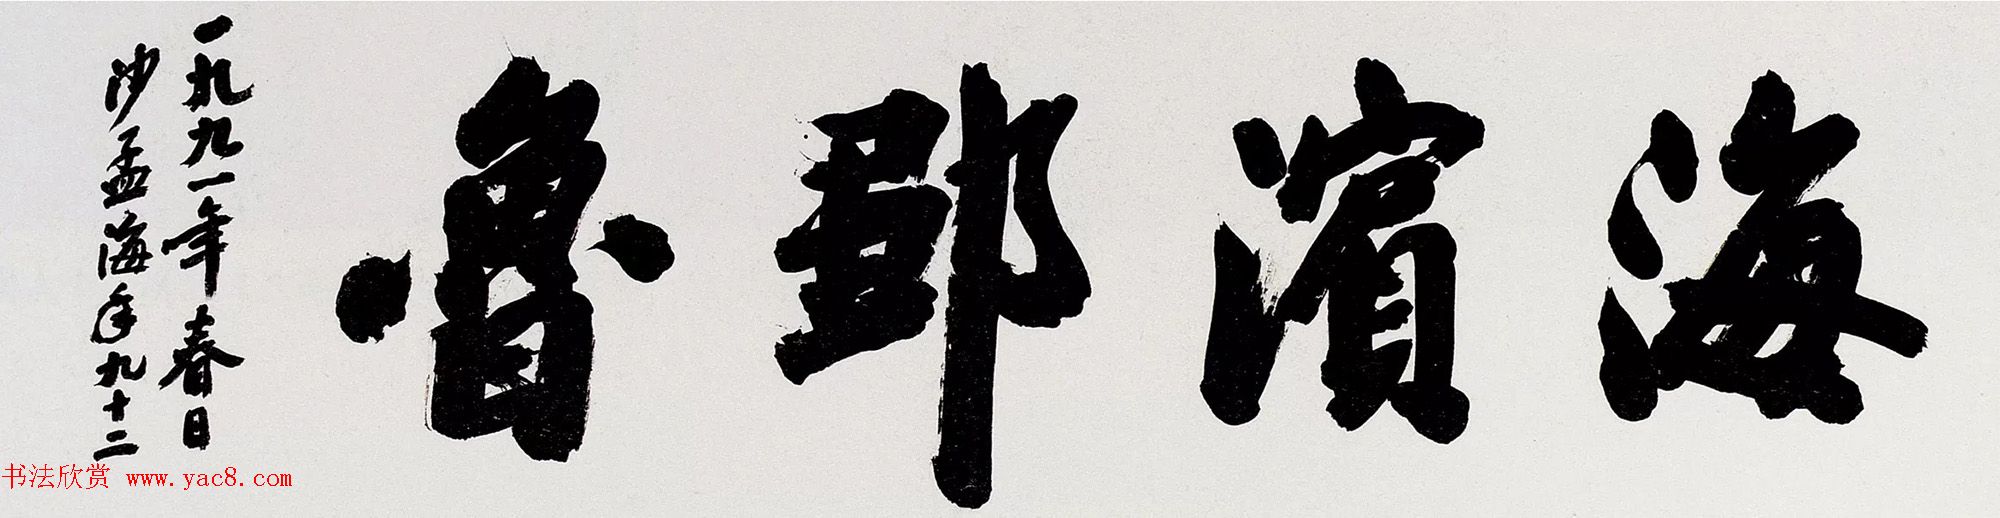 海濱鄒魯
一九九一年春日
沙孟海年九十二
书法欣赏 www.yac8.com